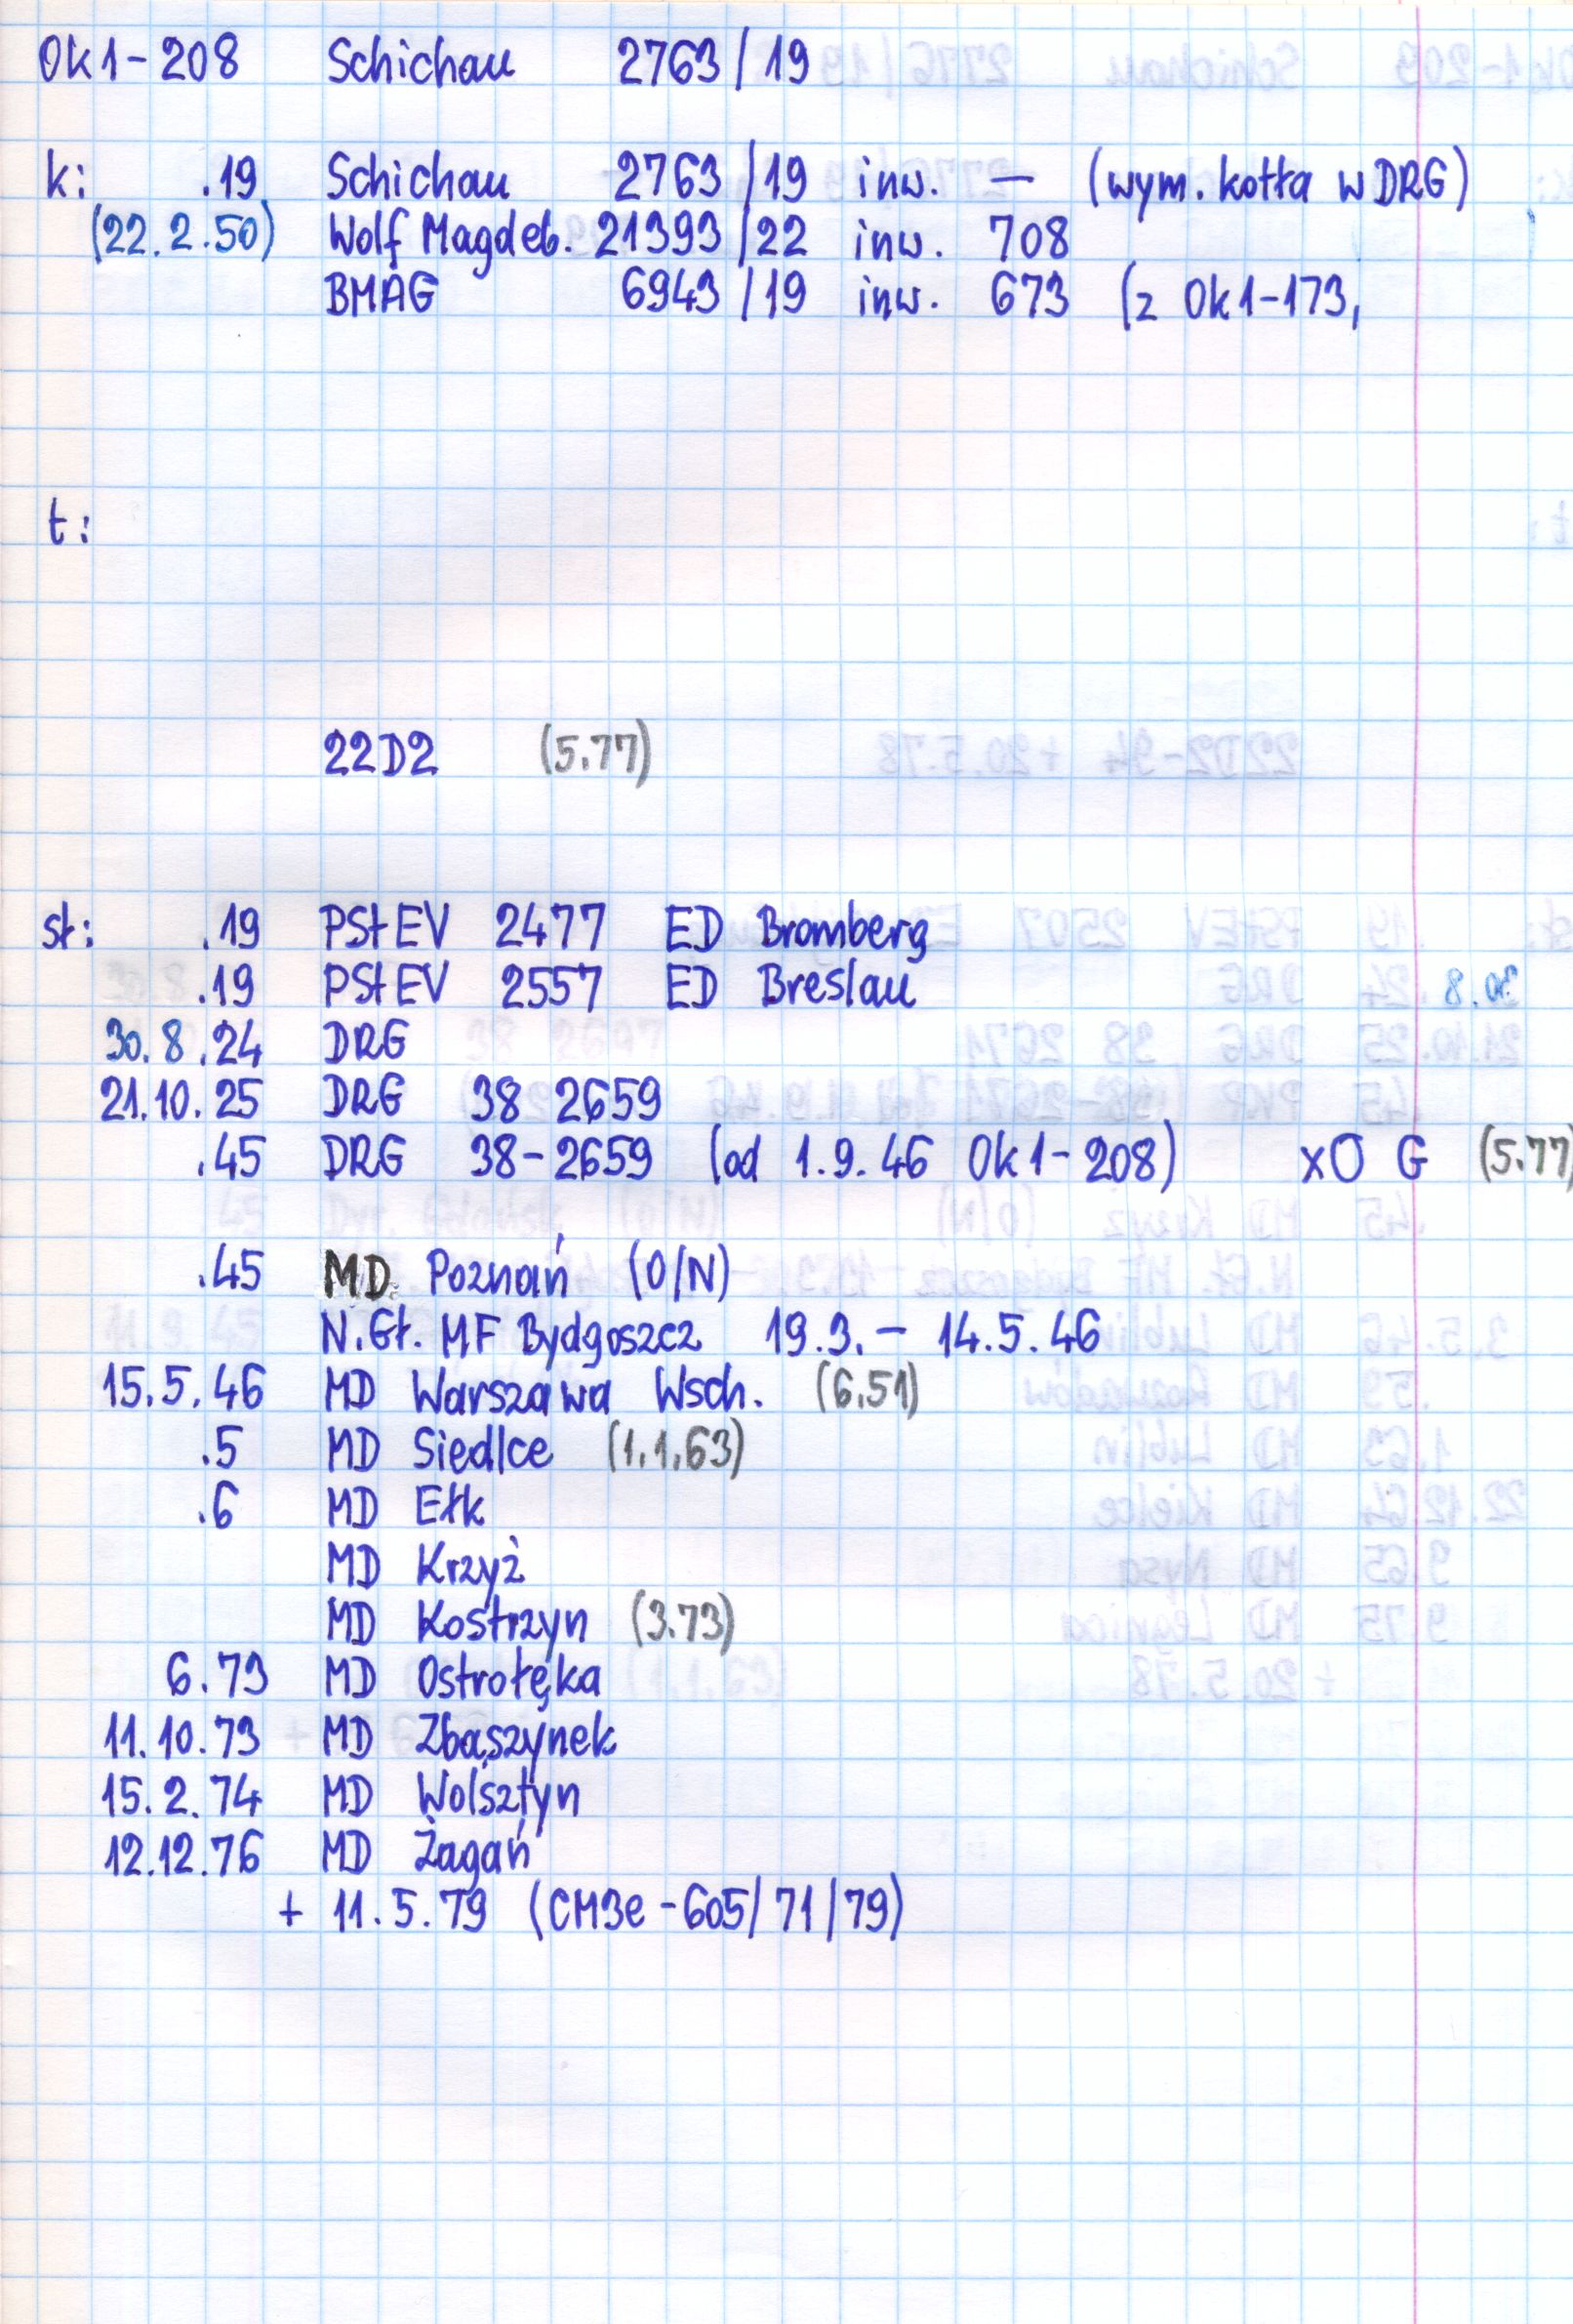 Ok1-208 Schichau 2763/19
k: .19 Schichau 2763/19 inw. — (wym. kotła w DRG)
(22.2.50) Wolf Magdeb. 21393/22 inw. 708
BMAG 6943/19 inw. 673 (z Ok1-173,
t:
22D2 (5.77)
st: .19 PStEV 2477 ED Bromberg
.19 PStEV 2557 ED Breslau
30.8.24 DRG
21.10.25 DRG 38 2659
.45 DRG 38-2659 (od 1.9.46 Ok1-208) xO G (5.77)
.45 MD Poznań (O/N)
N.Gł. MF Bydgoszcz 19.3. – 14.5.46
15.5.46 MD Warszawa Wsch. (6.51)
.5 MD Siedlce (1.1.63)
.6 MD Ełk
MD Krzyż
MD Kostrzyn (3.73)
6.73 MD Ostrołęka
11.10.73 MD Zbąszynek
15.2.74 MD Wolsztyn
12.12.76 MD Żagań
+ 11.5.79 (CM3e-605/71/79)